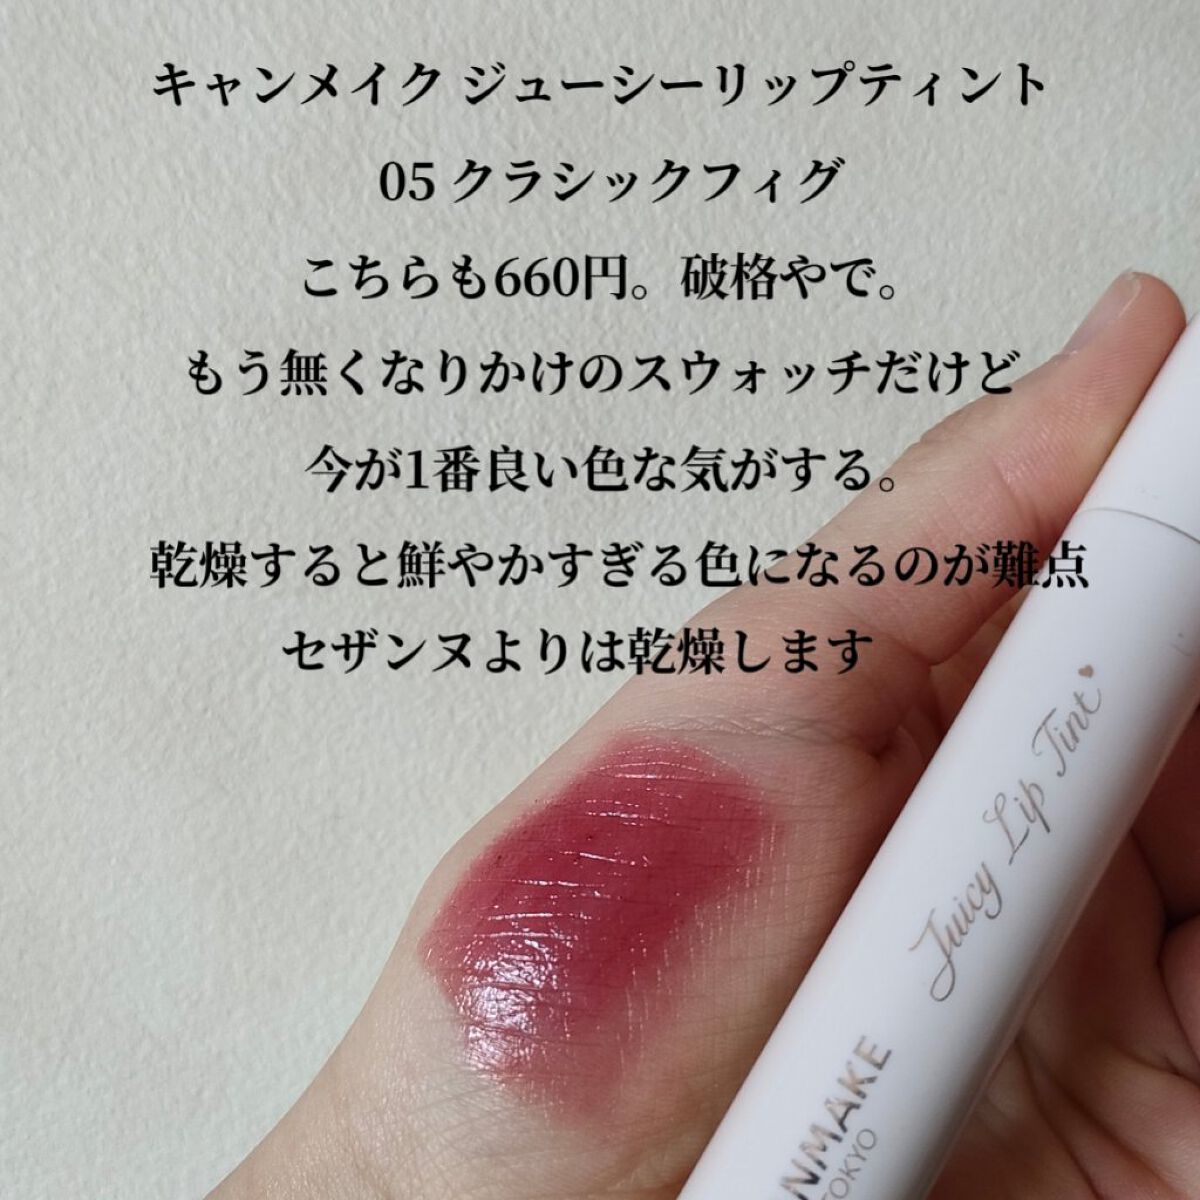 キャンメイク ジューシーリップティント
05 クラシックフィグ
こちらも660円。破格やで。
もう無くなりかけのスウォッチだけど
今が1番良い色な気がする。
乾燥すると鮮やかすぎる色になるのが難点
セザンヌよりは乾燥します
Juicy Lip Tint
NMAKE
TOKYO